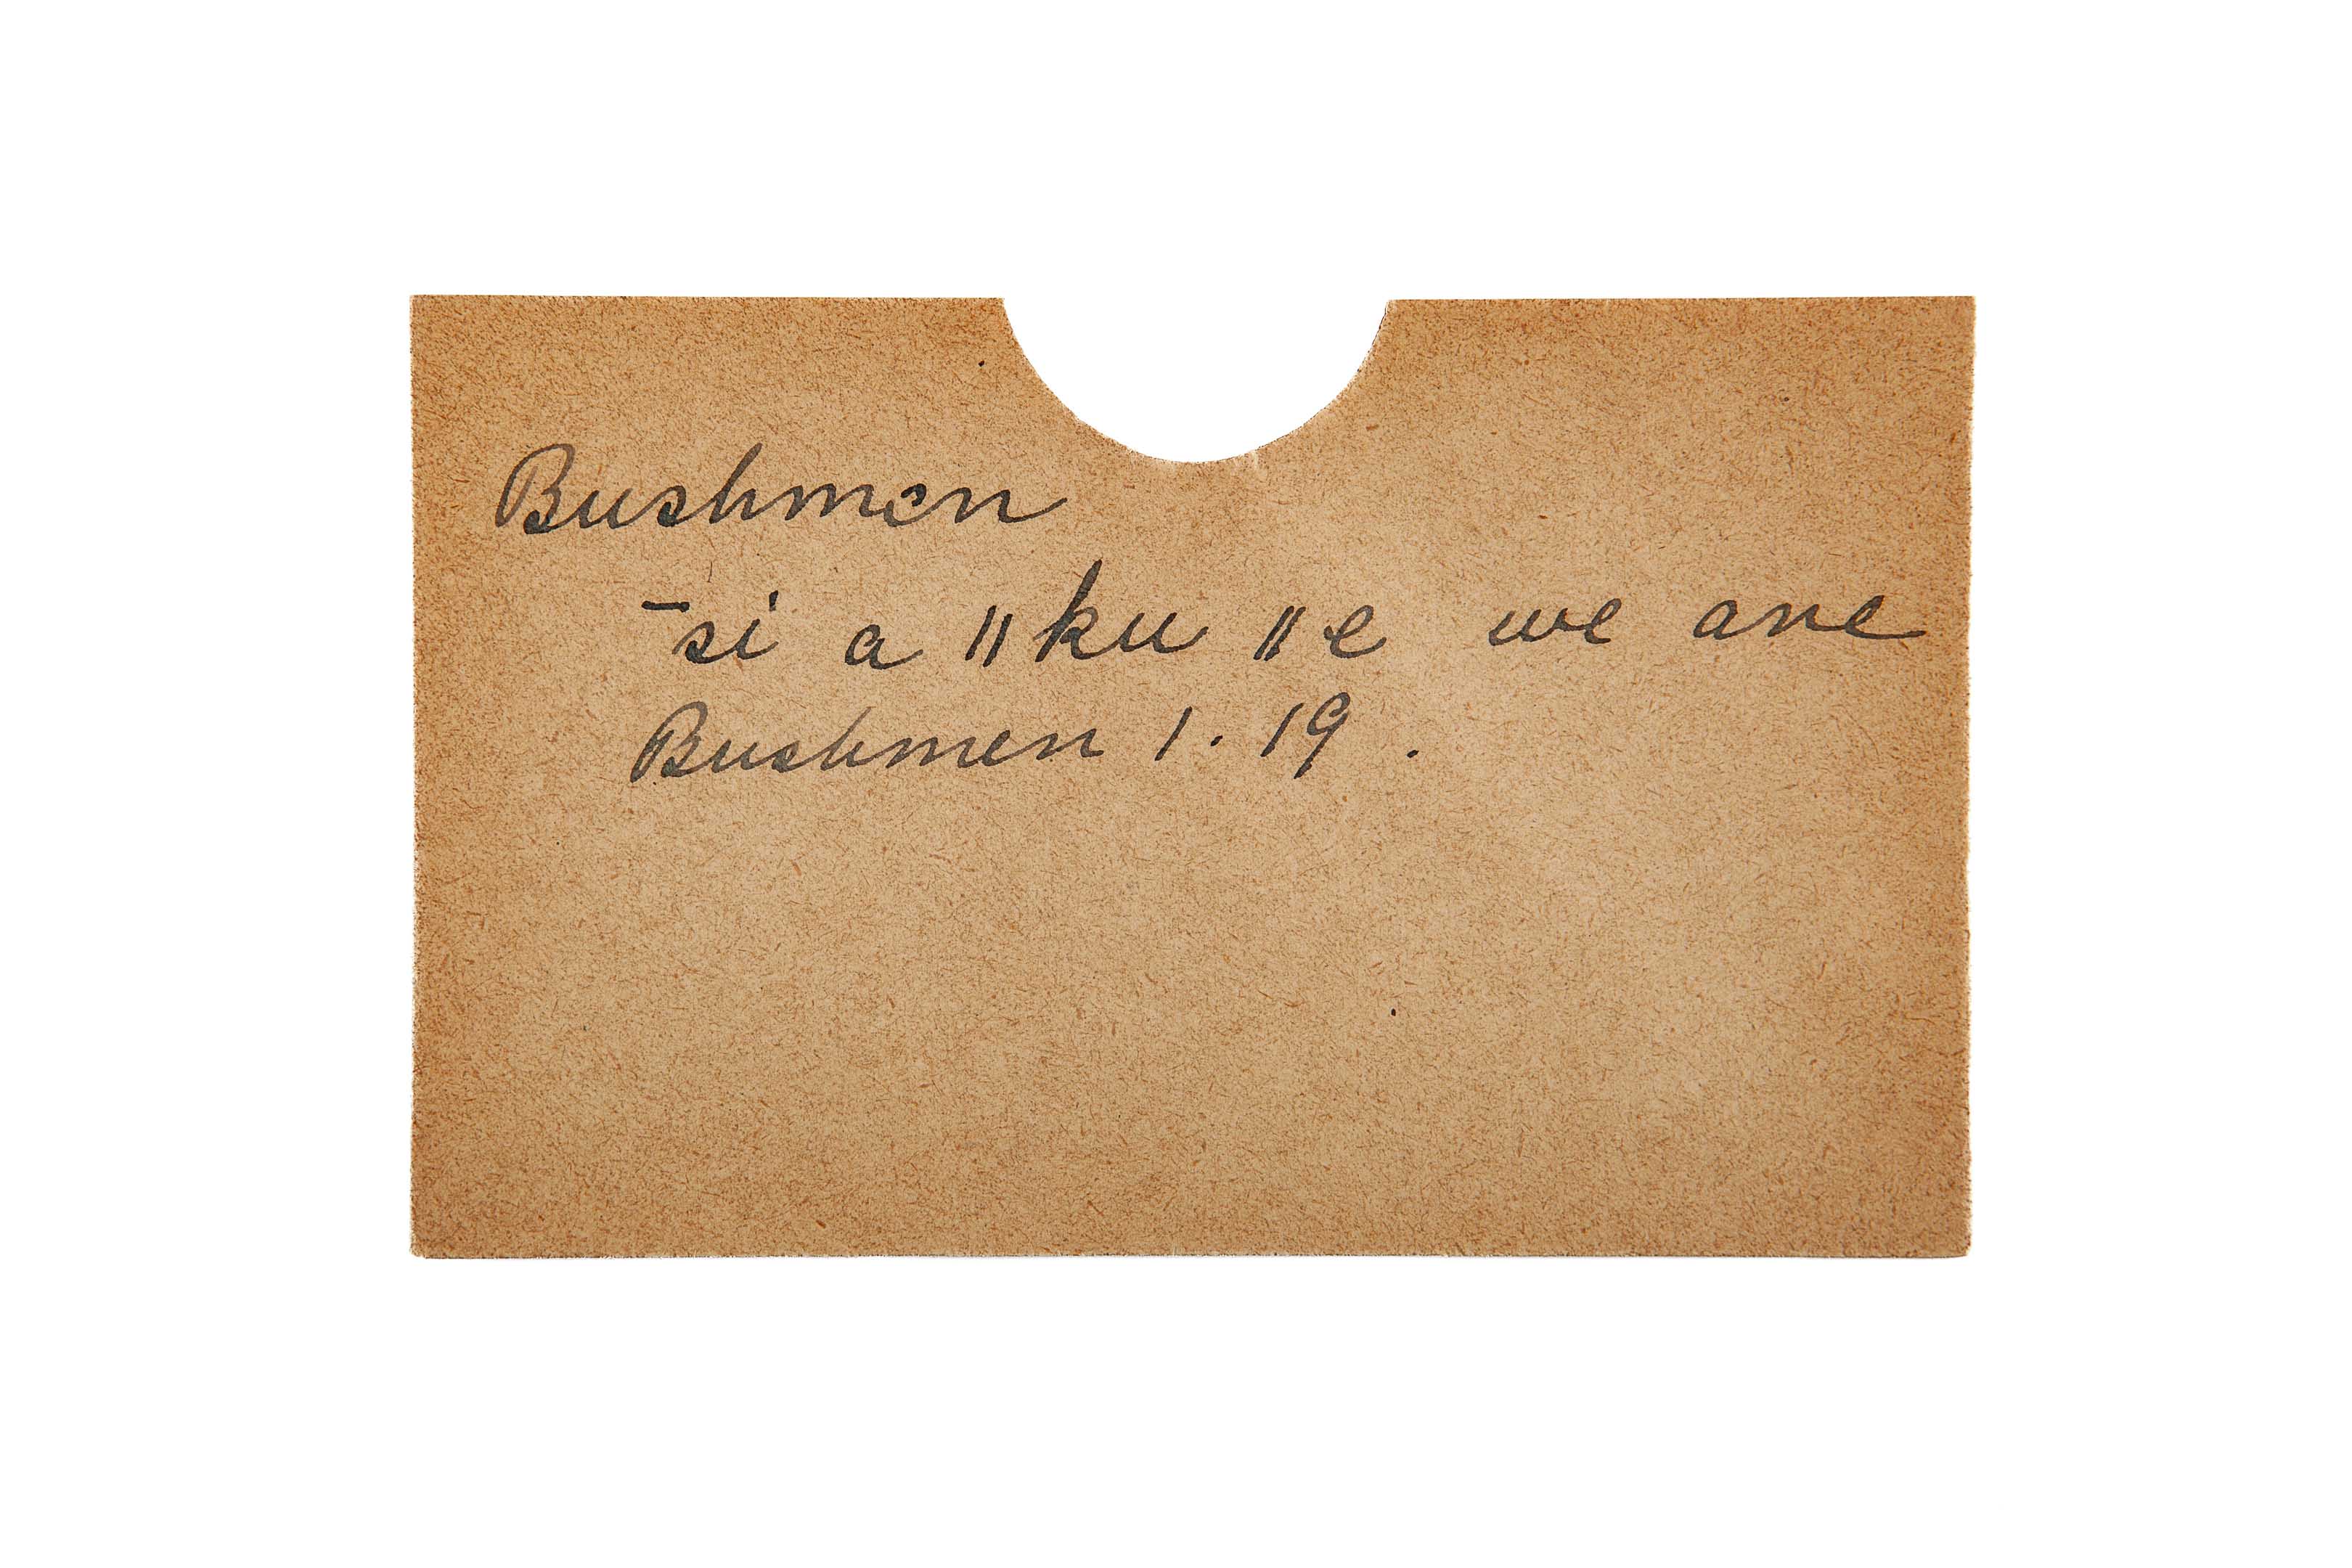 Bushmen
‾si a ‖ku ‖e we are
Bushmen 1. 19.